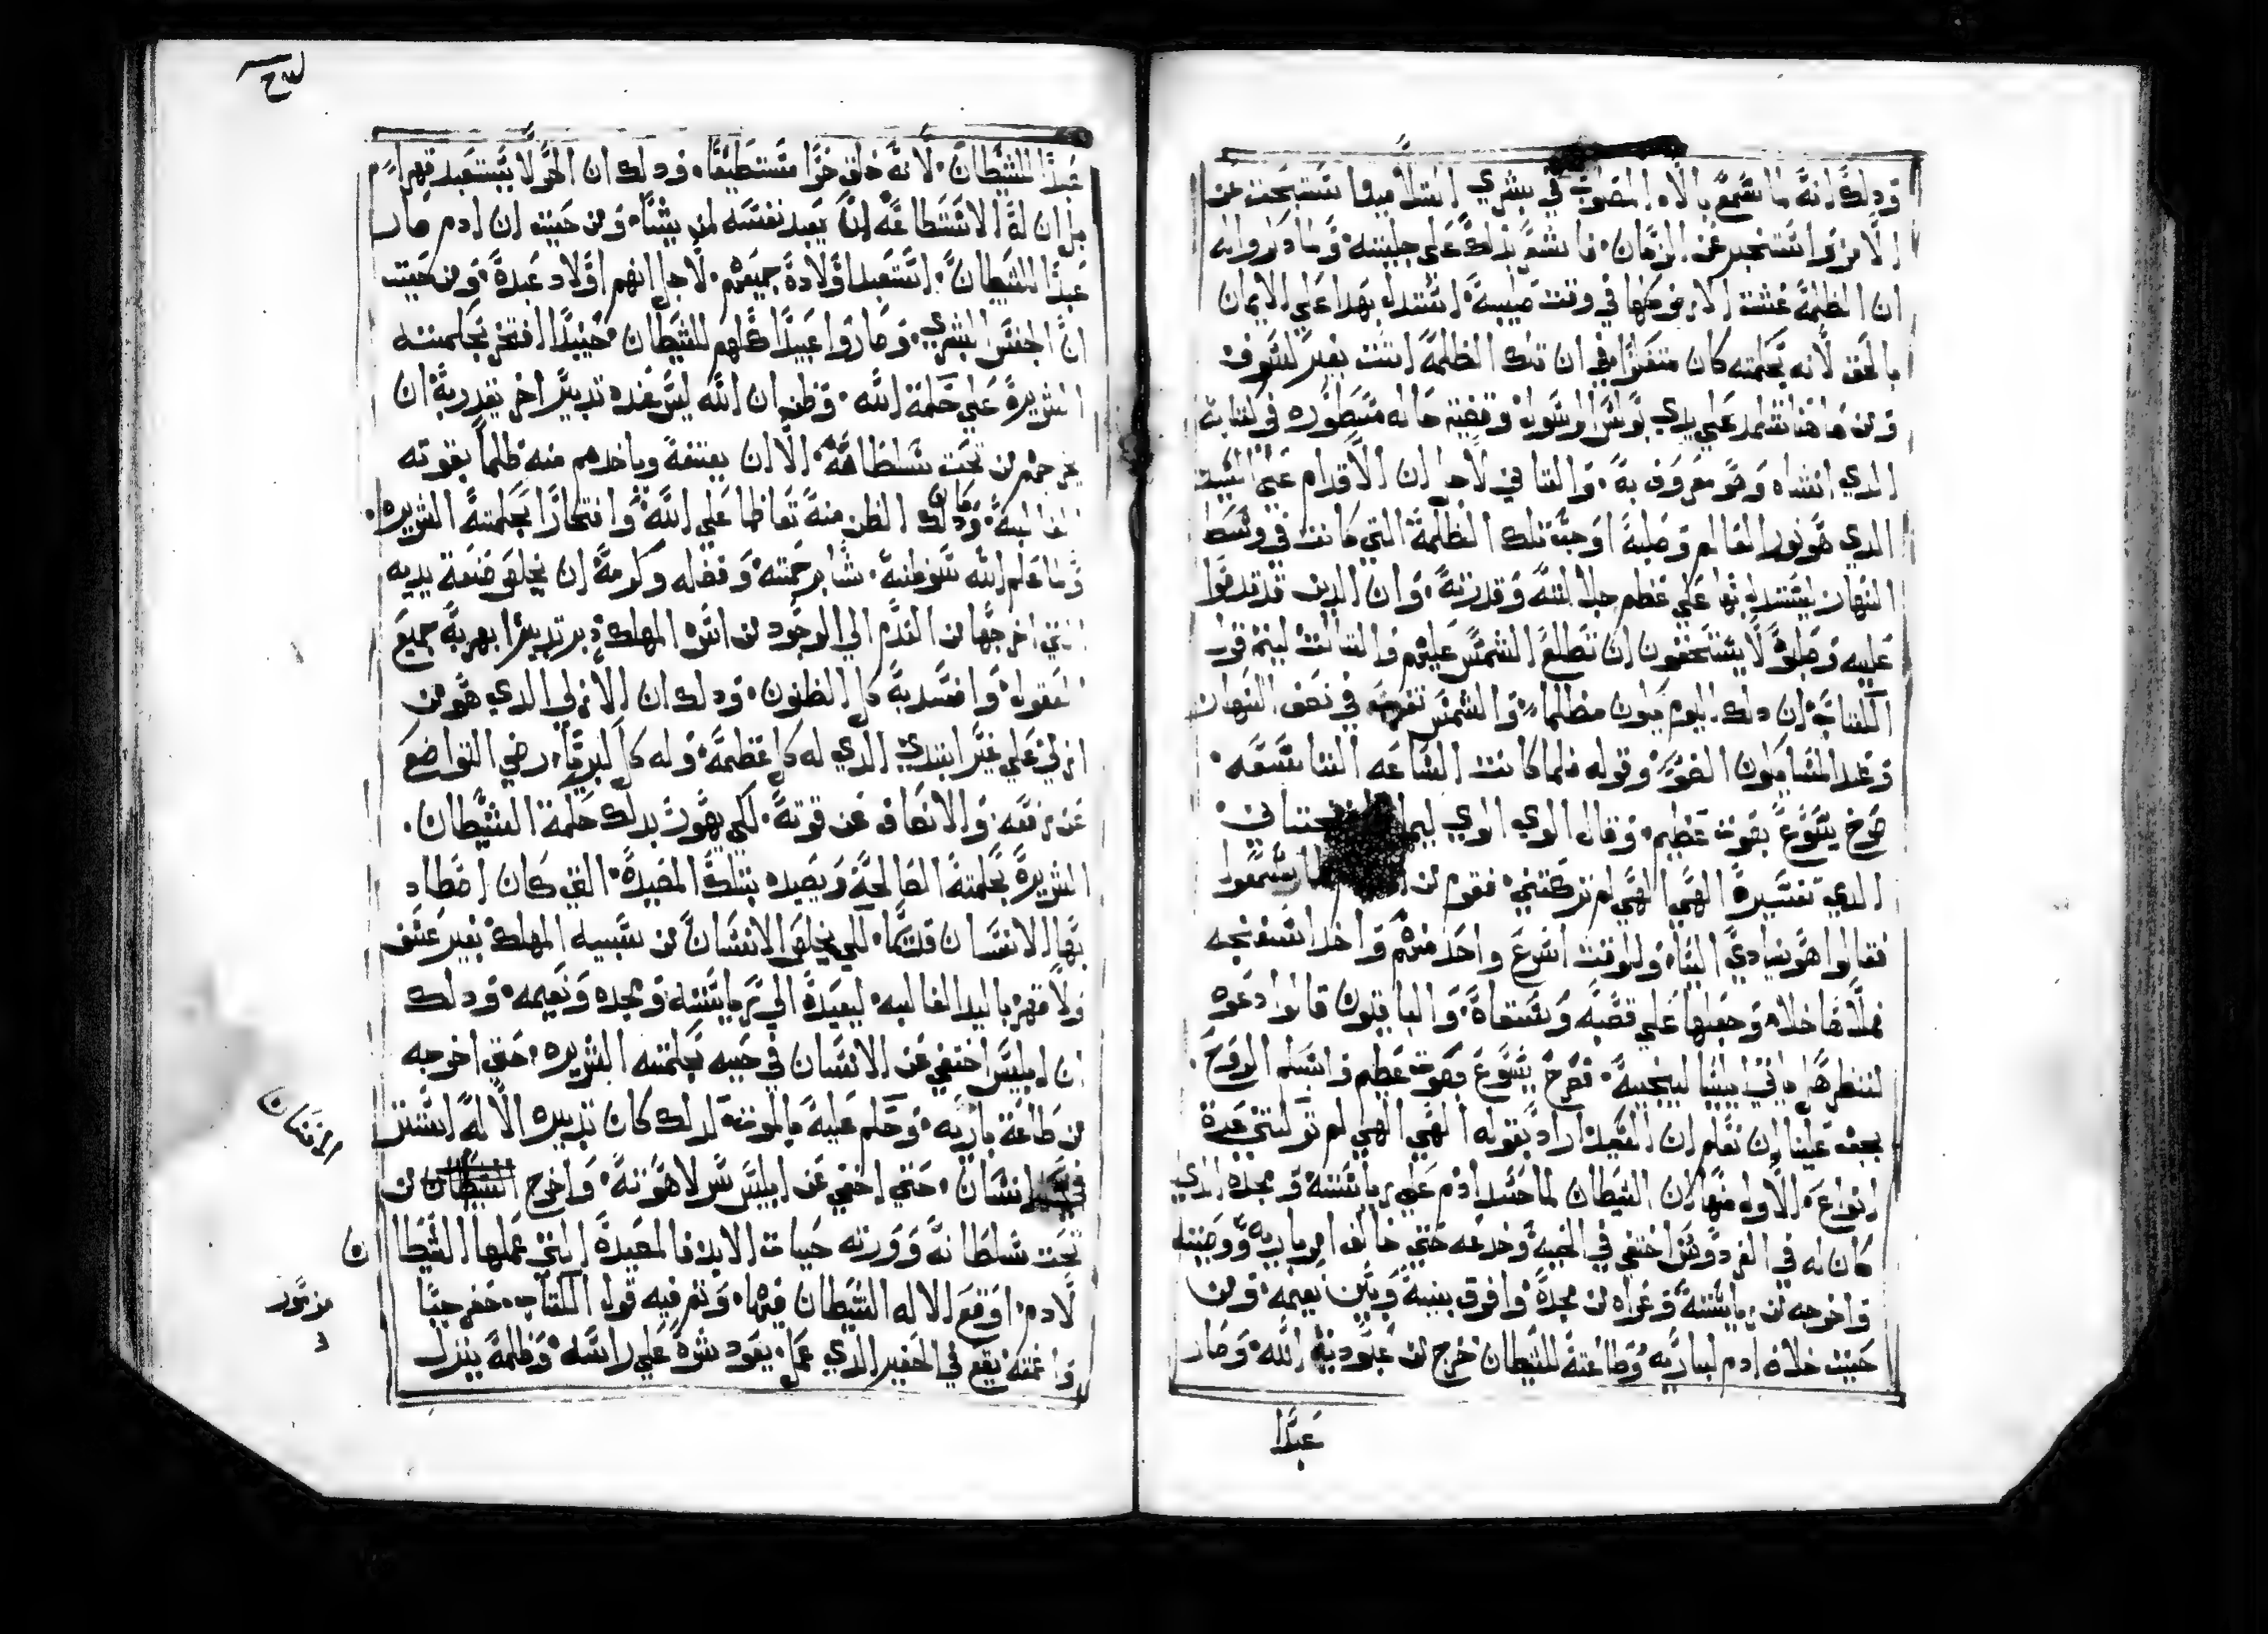 ودلك انه لما سمع بالاه المصلوب في بشري اتتلاميدوا تتبحت عن
الامر واستخبر عن الزمان
ان الظلمة غشت الارض كلها في وقت صلبية استدل بهدا علي الايمان
بالحق لانه بحكمته كان متفرا في ان تلك الظلمة اتت بغير كسوف
ومن هاهنا تتلمد علي يدي بولس الرسول وقضية حاله مسطوره في كتابه
الدي انشاه وهو معروف به والتاني لاجل ان الاقدام علي السيد
الدي هو نور العالم وصلبة اوجبة تلك الظلمة التي كانت في وسط
النهار ليستدل بها علي عظم جلالته وقدرته وان الدين قد تدمروا
عليه وصلبوه لا يستحقون ان تطلع الشمس عليهم والتالت ليتم قول
الكتاب ان دلك اليوم يكون مظلما والشمس تغرب في نصف النهار
وعند المسا يكون الضو وقوله فلما كانت الساعه التاسعه
صرخ يسوع بصوت عظيم وقال الوي الوي ليما
الدي تفسيره الهي الهي لم تركتني فقوم من لما سمعوا
فقالوا هو ينادي ايليا وللوقت اسرع واحد منهم واخد اسفنجه
فملاها خلا وجعلها علي قصبه وسقاه والباقيون قالوا دعوه
لننظر هل ياتي ايليا لينجيه فصرخ يسوع بصوت عظيم واسلم الروح
يجب علينا ان نعلم ان السيد اراد بقوله الهي الهي لم تركتني عدة
انواع الاول منها لان الشيطان لما حسد ادم علي رياسته ومجده الدي
كان له في الفردوس اختفي في الحية وخدعه حتي خالف امر باريه ووصيته
واخرجه من رياسته وعراه من مجده وافرق بينه وبين نعيمه ومن
حيت خلاف ادم لباريه وطاعته للشيطان خرج من عبودية الله وصار
عبدا
عبدا للشيطان لانه خلق حرا مستطيعا ودلك ان الحر لا يستعبد قهرا
بل ان له الاستطاعه ان يعبد نفسه لمن يشا ومن حيت ان ادم صار
عبدا للشيطان استعبد اولاده جميعهم لاجل انهم اولاد عبده ومن حيت
ان الجنس البشري وصاروا عبيدا كلهم للشيطان حينيدا افتخر بحكمته
الشريرة علي حكمة الله وظن ان الله ليس عنده تدبيرا اخر يقدر به ان
يخرجهم من تحت سلطانه الا ان يغتصبه وياخدهم منه ظلما بقوته
الغالبة وكان دلك الظن منه تعاظما علي الله وافتخارا بحكمته الشريره
ولما علم الله سو ظنه شا برحمته وفضله وكرمه ان يخلص صنعة يديه
التي اخرجها من العدم الي الوجود من اسره المهلك دبر تدبيرا بهر به جميع
العقول وافسد به كل الظنون ودلك ان الازلي الدي هو من
ازلي علي غير ابتدي الدي له كل عظمة وله كل كبريا رضي التواضع
عن رفعه والاتضاع عن قوته لكي يهور بدلك حكمة الشيطان
الشريرة بحكمته الصالحة ويصيده بتلك المصيدة التي كان اصطاد
بها الانسان قديما لكي يخلص الانسان من سبيه المهلك بغير عسف
ولا قهر باليد الغالبه ليعيده الي رياسته ومجده ونعيمه ودلك
ان ابليس اختفي عن الانسان في حيه بحكمته الشريره حتي اخرجه
من طاعة باريه وحكم عليه بالموت لدلك كان تدبيره الاله استتر
في انسان حتي اخفي عن ابليس سر لاهوته واخرج الشيطان من
الانسان
تحت سلطانه وورته حيات الابد فالمصيدة التي عملها الشيطان
لادم اوقع الاله الشيطان فيها وتم فيه قول الكتاب حفر جبا
مزمور
واعمقه يقع في الحفير الدي عمل يعود شره علي راسه وظلمه ينزل